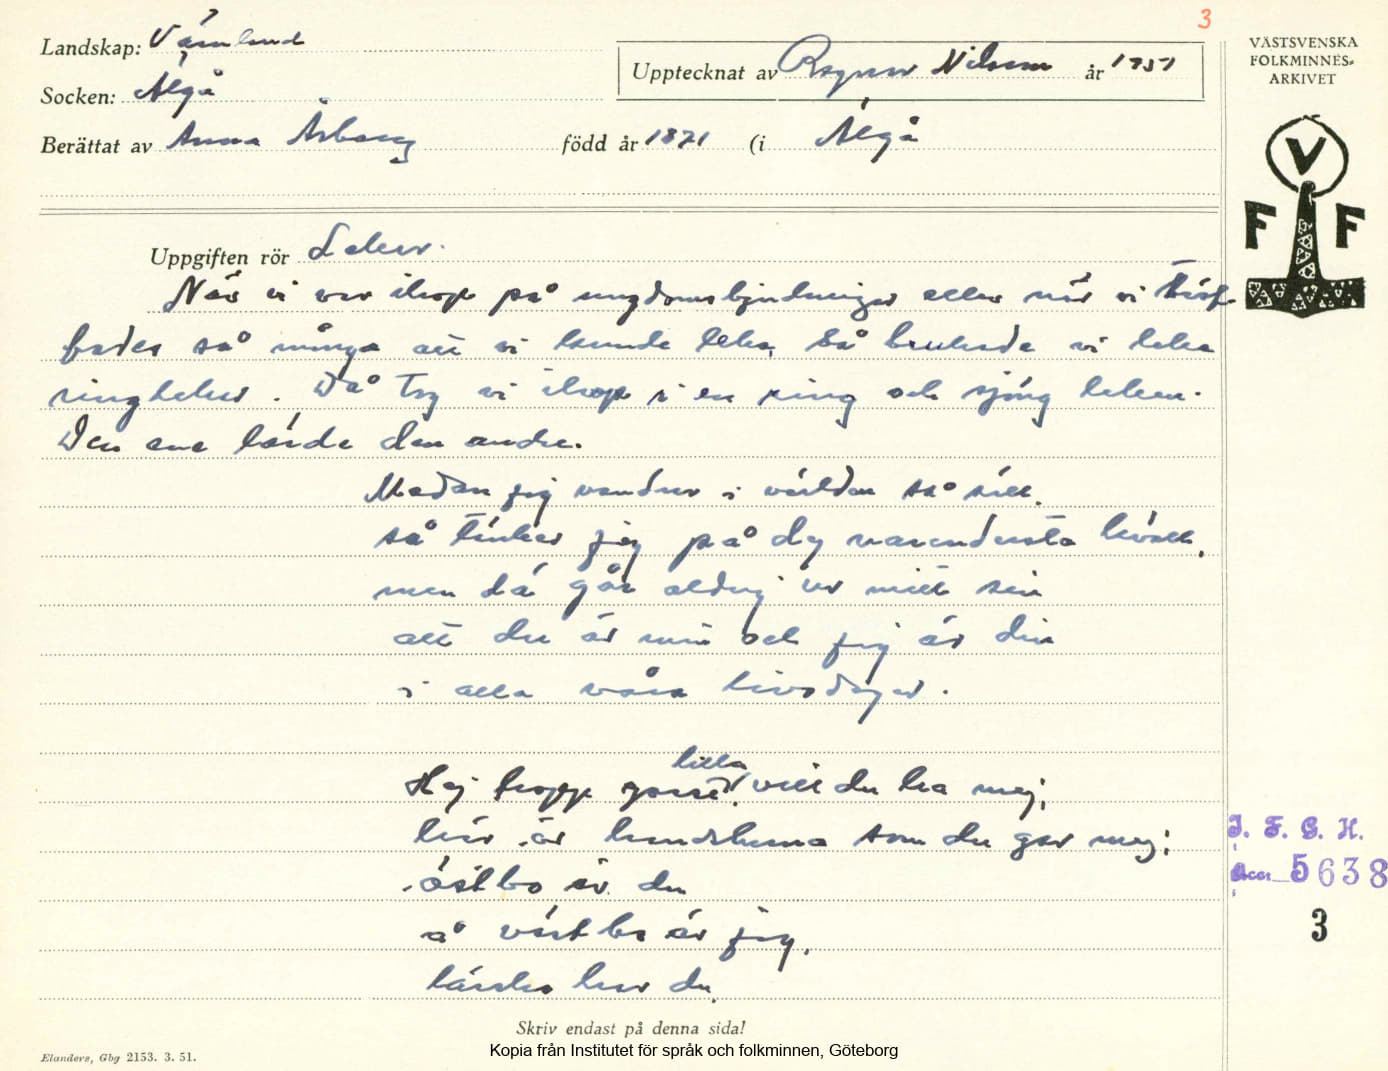 3
Landskap: Värmland
Upptecknat av Ragnar Nilsson år 1951
VÄSTSVENSKA
FOLKMINNES-
ARKIVET
Socken: Älgå
Berättat av Anna Åsberg född år 1871 (i Älgå
V
F F
Uppgiften rör Lekar.
När vi var ihop på ungdomsbjudningar eller när vi träf-
fades så många att vi kunde leka, så brukade vi leka
ringlekar. Då tog vi ihop i en ring och sjöng leken.
Den ene lärde den andre.
Medan jag vandrar i världen så säll.
så tänker jag på dig varendersta kväll,
men dä går aldrig ur mitt sin
att du är min och jag är din
i alla våra livsdagar.
lilla
Hej hopp gosse, vill du ha mej,
här är handskarna som du gav mej;
östbo är du
å västbo är jag,
kärsta har du
I. F. G. H.
Acc. 5638
3
Skriv endast på denna sida!
Elanders, Gbg 2153. 3. 51.
Kopia från Institutet för språk och folkminnen, Göteborg